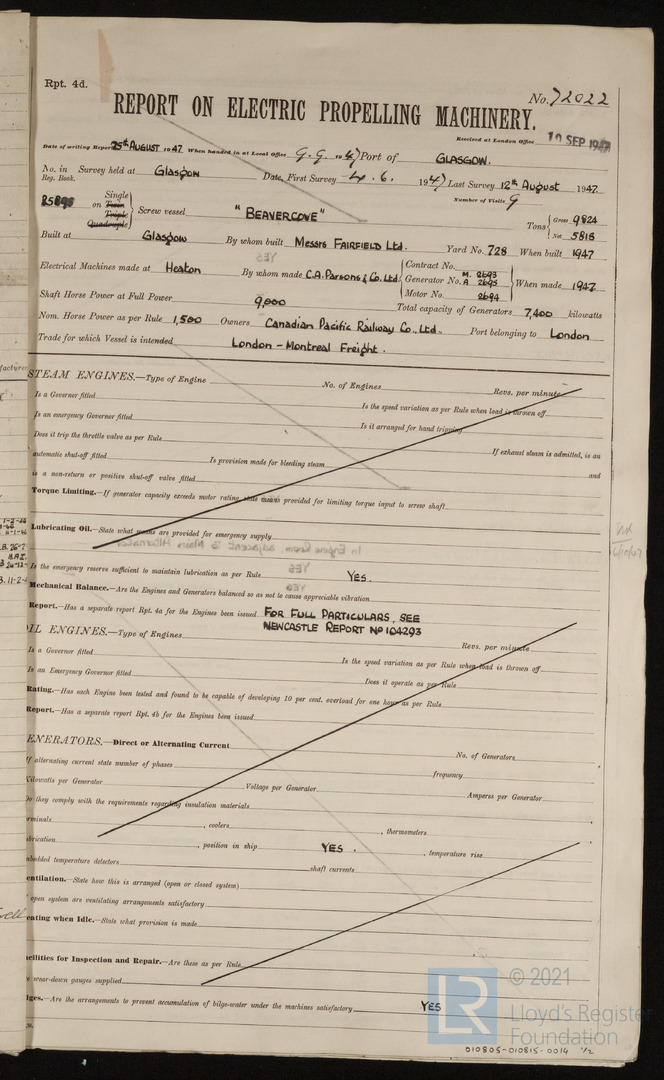 Rpt. 4d.
No. 72022
REPORT ON ELECTRIC PROPELLING MACHINERY.
Received at London Office 10 SEP 1947
Date of writing Report 25th AUGUST 1947 When handed in at Local Office 9. 9. 1947 Port of GLASGOW.
No. in Reg. Book. Survey held at Glasgow Date, First Survey 4. 6. 1947 Last Survey 12th August 1947
Number of Visits 9
on Single Twin Triple Quadruple Screw vessel "BEAVERCOVE" Tons Gross 9824 Net 5818
Built at Glasgow By whom built Messrs FAIRFIELD Ltd. Yard No. 728 When built 1947
Electrical Machines made at Heaton By whom made C.A. Parsons & Co. Ltd. Contract No. Generator No. M. 2693 A 2695 Motor No. 2694 When made 1947
Shaft Horse Power at Full Power 9,000 Total capacity of Generators 7,400 kilowatts
Nom. Horse Power as per Rule 1,500 Owners Canadian Pacific Railway Co., Ltd. Port belonging to London
Trade for which Vessel is intended London - Montreal Freight.
STEAM ENGINES.—Type of Engine No. of Engines Revs. per minute
Is a Governor fitted Is the speed variation as per Rule when load is thrown off
Is an emergency Governor fitted Is it arranged for hand tripping
Does it trip the throttle valve as per Rule If exhaust steam is admitted, is an
automatic shut-off fitted Is provision made for bleeding steam and
is a non-return or positive shut-off valve fitted
Torque Limiting.—If generator capacity exceeds motor rating, state means provided for limiting torque input to screw shaft
Lubricating Oil.—State what means are provided for emergency supply
Is the emergency reserve sufficient to maintain lubrication as per Rule YES.
Mechanical Balance.—Are the Engines and Generators balanced so as not to cause appreciable vibration
Report.—Has a separate report Rpt. 4a for the Engines been issued FOR FULL PARTICULARS, SEE
NEWCASTLE REPORT No 104293
OIL ENGINES.—Type of Engines Revs. per minute
Is a Governor fitted Is the speed variation as per Rule when load is thrown off
Is an Emergency Governor fitted Does it operate as per Rule
Rating.—Has each Engine been tested and found to be capable of developing 10 per cent. overload for one hour as per Rule
Report.—Has a separate report Rpt. 4b for the Engines been issued
ENERATORS.—Direct or Alternating Current No. of Generators
If alternating current state number of phases frequency
Kilowatts per Generator Voltage per Generator Amperes per Generator
Do they comply with the requirements regarding insulation materials
rminals , coolers , thermometers ,
brication , position in ship YES. , temperature rise
bedded temperature detectors shaft currents
entilation.—State how this is arranged (open or closed system)
open system are ventilating arrangements satisfactory
eating when Idle.—State what provision is made
acilities for Inspection and Repair.—Are these as per Rule
e wear-down gauges supplied
lges.—Are the arrangements to prevent accumulation of bilge-water under the machines satisfactory YES
© 2021
LR
Lloyd's Register
Foundation
010805-010815-0014 1/2